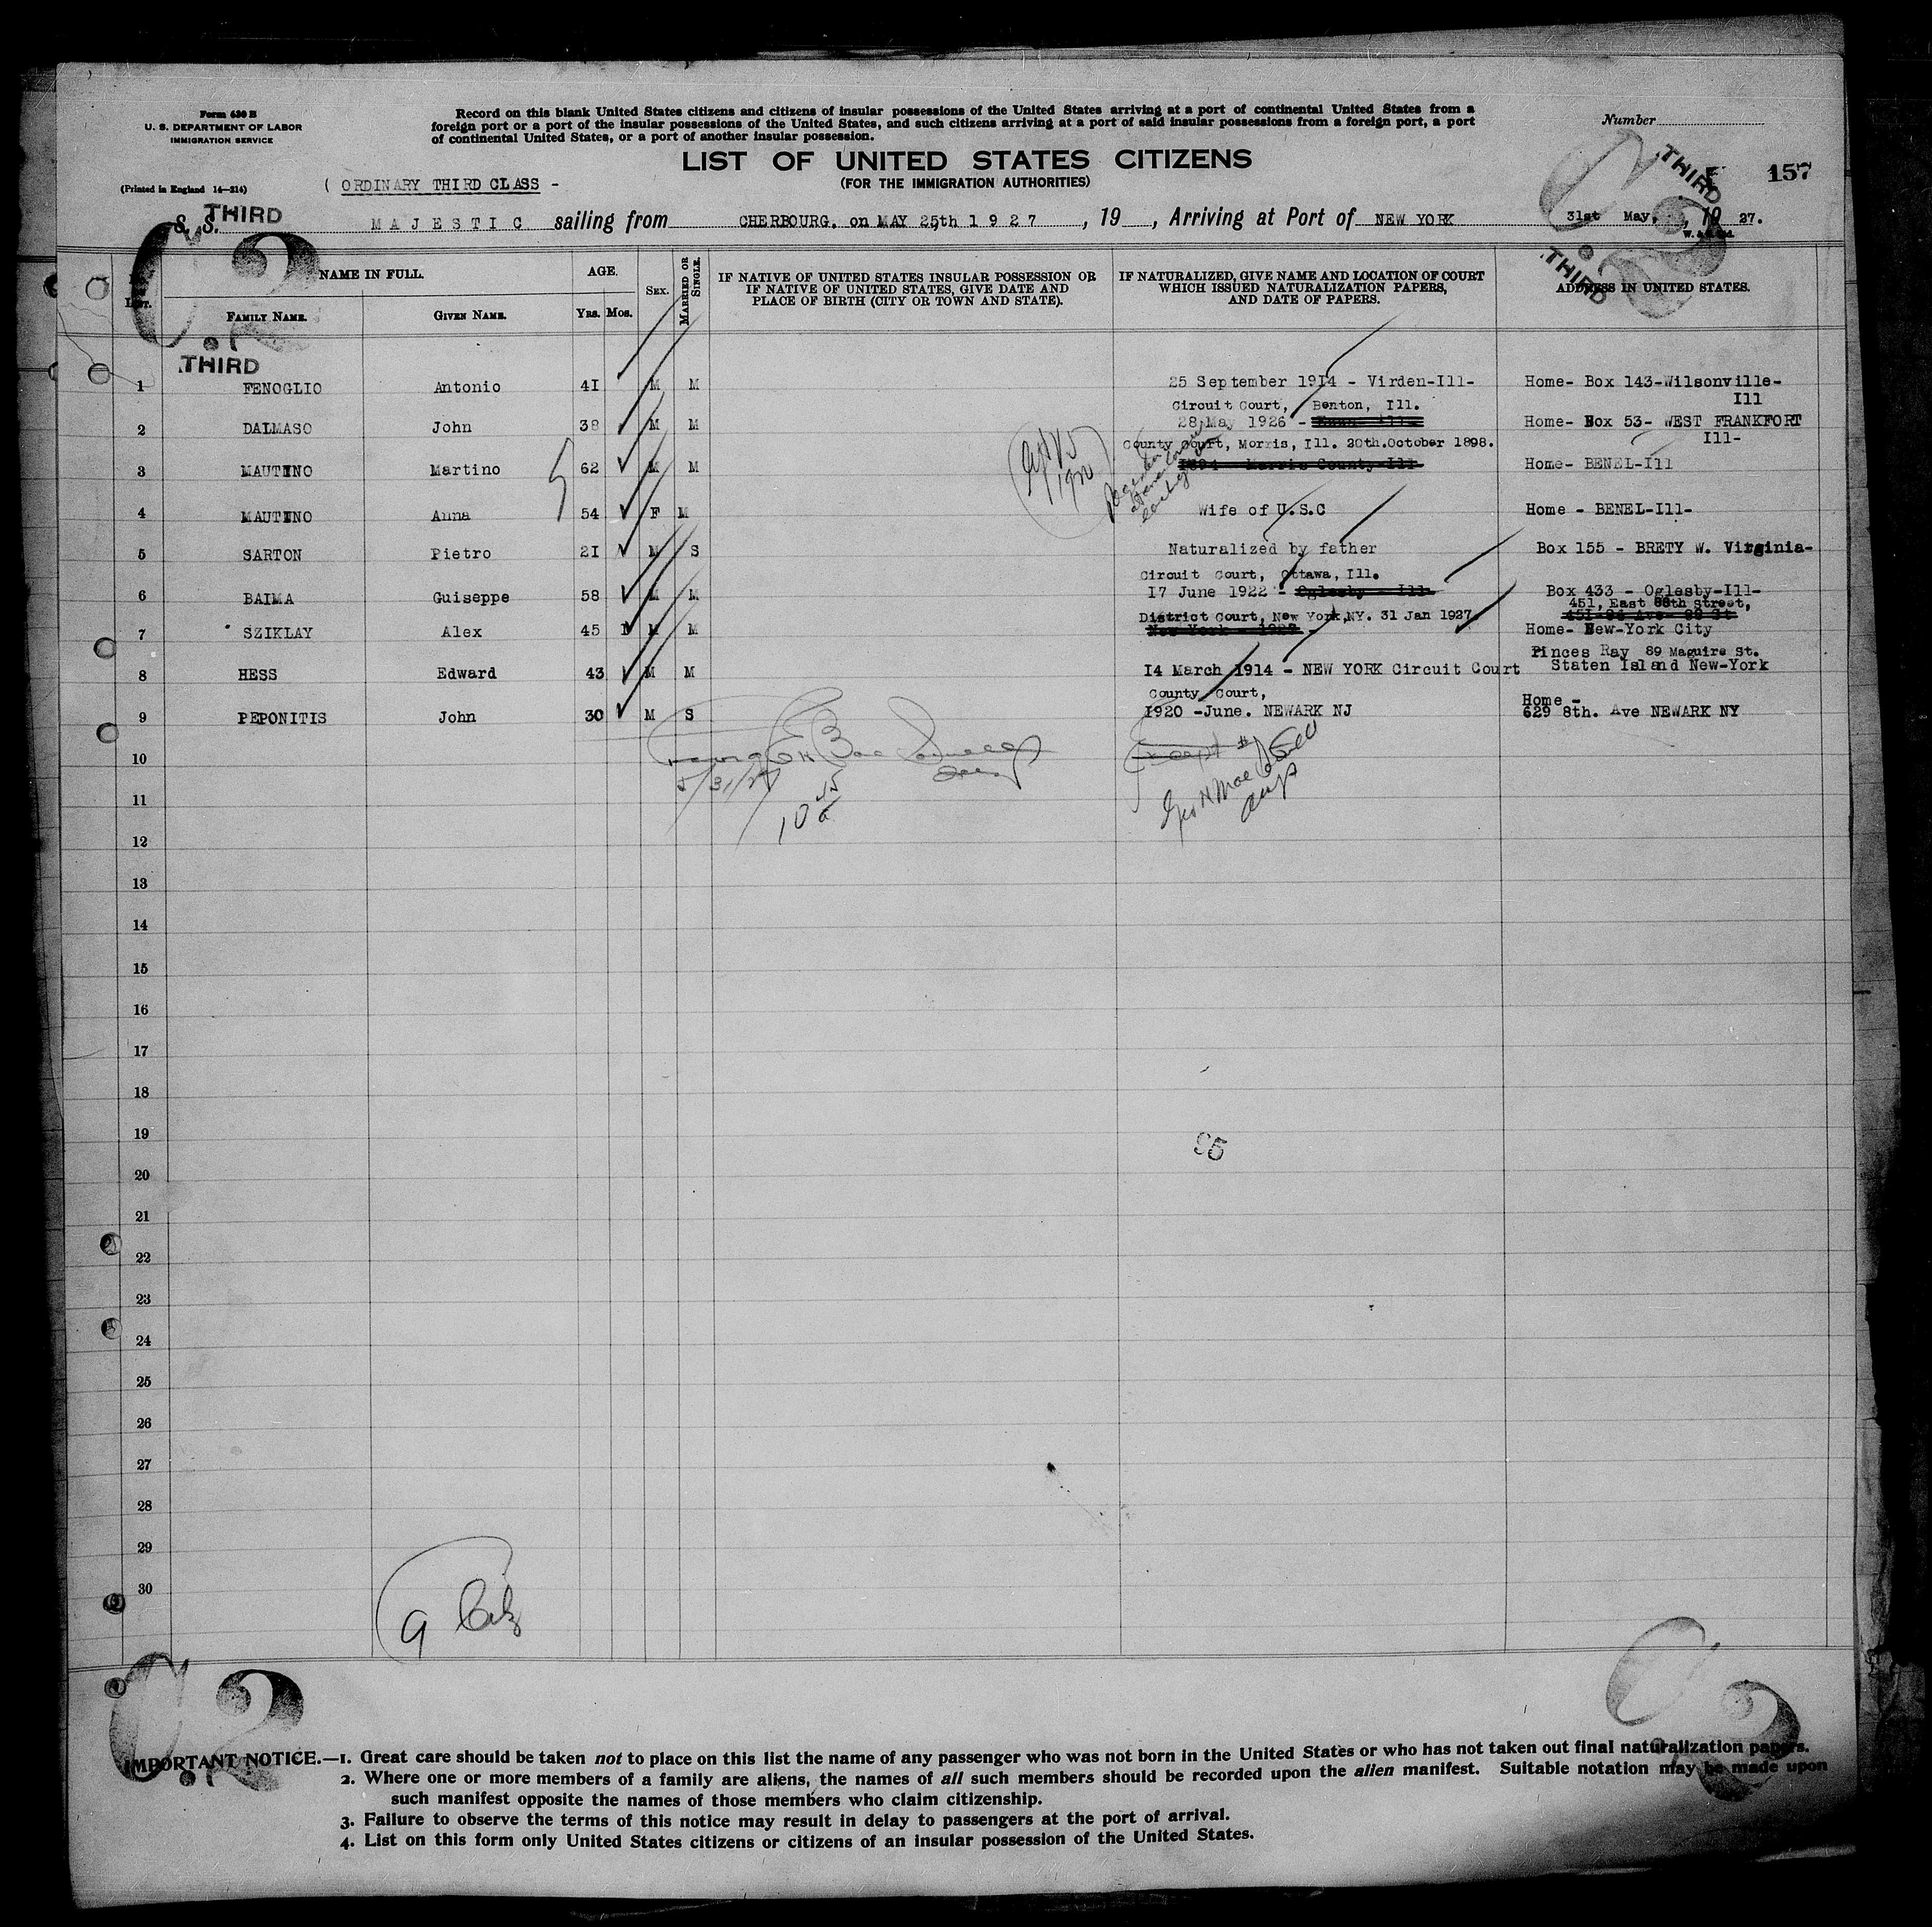 Form 630 B
U. S. DEPARTMENT OF LABOR
IMMIGRATION SERVICE
(Printed in England 14—214)
Record on this blank United States citizens and citizens of insular possessions of the United States arriving at a port of continental United States from a
foreign port or a port of the insular possessions of the United States, and such citizens arriving at a port of said insular possessions from a foreign port, a port
of continental United States, or a port of another insular possession.
Number
LIST OF UNITED STATES CITIZENS
(FOR THE IMMIGRATION AUTHORITIES)
( ORDINARY THIRD CLASS -
157
THIRD
THIRD
S. S. MAJESTIC sailing from CHERBOURG, on MAY 25th 1 9 2 7, 19, Arriving at Port of NEW YORK 31st May, 19 27.
C.2
C.2
THIRD
THIRD
LIST.
NAME IN FULL.
FAMILY NAME.
GIVEN NAME.
AGE.
YRS. MOS.
SEX.
MARRIED OR SINGLE.
IF NATIVE OF UNITED STATES INSULAR POSSESSION OR
IF NATIVE OF UNITED STATES, GIVE DATE AND
PLACE OF BIRTH (CITY OR TOWN AND STATE).
IF NATURALIZED, GIVE NAME AND LOCATION OF COURT
WHICH ISSUED NATURALIZATION PAPERS,
AND DATE OF PAPERS.
ADDRESS IN UNITED STATES.
1 FENOGLIO Antonio 4I M M 25 September 19I4 - Virden-Ill- Home- Box 143-Wilsonville-
Ill
Circuit Court, Benton, Ill.
2 DALMASO John 38 M M 28 May 1926 - Home- Box 53- WEST FRANKFORT
Ill-
County Court, Morris, Ill. 20th.October 1898.
3 MAUTINO Martino 62 M M 1894 - Morris County-Ill Home- BENEL-Ill
4 MAUTINO Anna 54 F M Wife of U.S.C Home - BENEL-Ill-
5 SARTON Pietro 2I M S Naturalized by father Box 155 - BRETY W. Virginia-
Circuit Court, Ottawa, Ill.
6 BAIMA Guiseppe 58 M M I7 June 1922 - Oglesby - Ill- Box 433 - Oglesby-Ill-
451, East 88th Street,
District Court, New York,NY. 31 Jan 1927.
7 SZIKLAY Alex 45 M M New York - 1927 - Home- New-York City
Pinces Ray 89 Maguire St.
8 HESS Edward 43 M M I4 March 1914 - NEW YORK Circuit Court Staten Island New-York
County Court,
Home -
9 PEPONITIS John 30 M S 1920 -June. NEWARK NJ 629 8th. Ave NEWARK NY
10
5/31/27
11
12
13
14
15
16
17
18
19
95
20
21
22
23
24
25
26
27
28
29
30
9 Citz
C.2
C.2
IMPORTANT NOTICE.—1. Great care should be taken not to place on this list the name of any passenger who was not born in the United States or who has not taken out final naturalization papers.
2. Where one or more members of a family are aliens, the names of all such members should be recorded upon the alien manifest. Suitable notation may be made upon
such manifest opposite the names of those members who claim citizenship.
3. Failure to observe the terms of this notice may result in delay to passengers at the port of arrival.
4. List on this form only United States citizens or citizens of an insular possession of the United States.